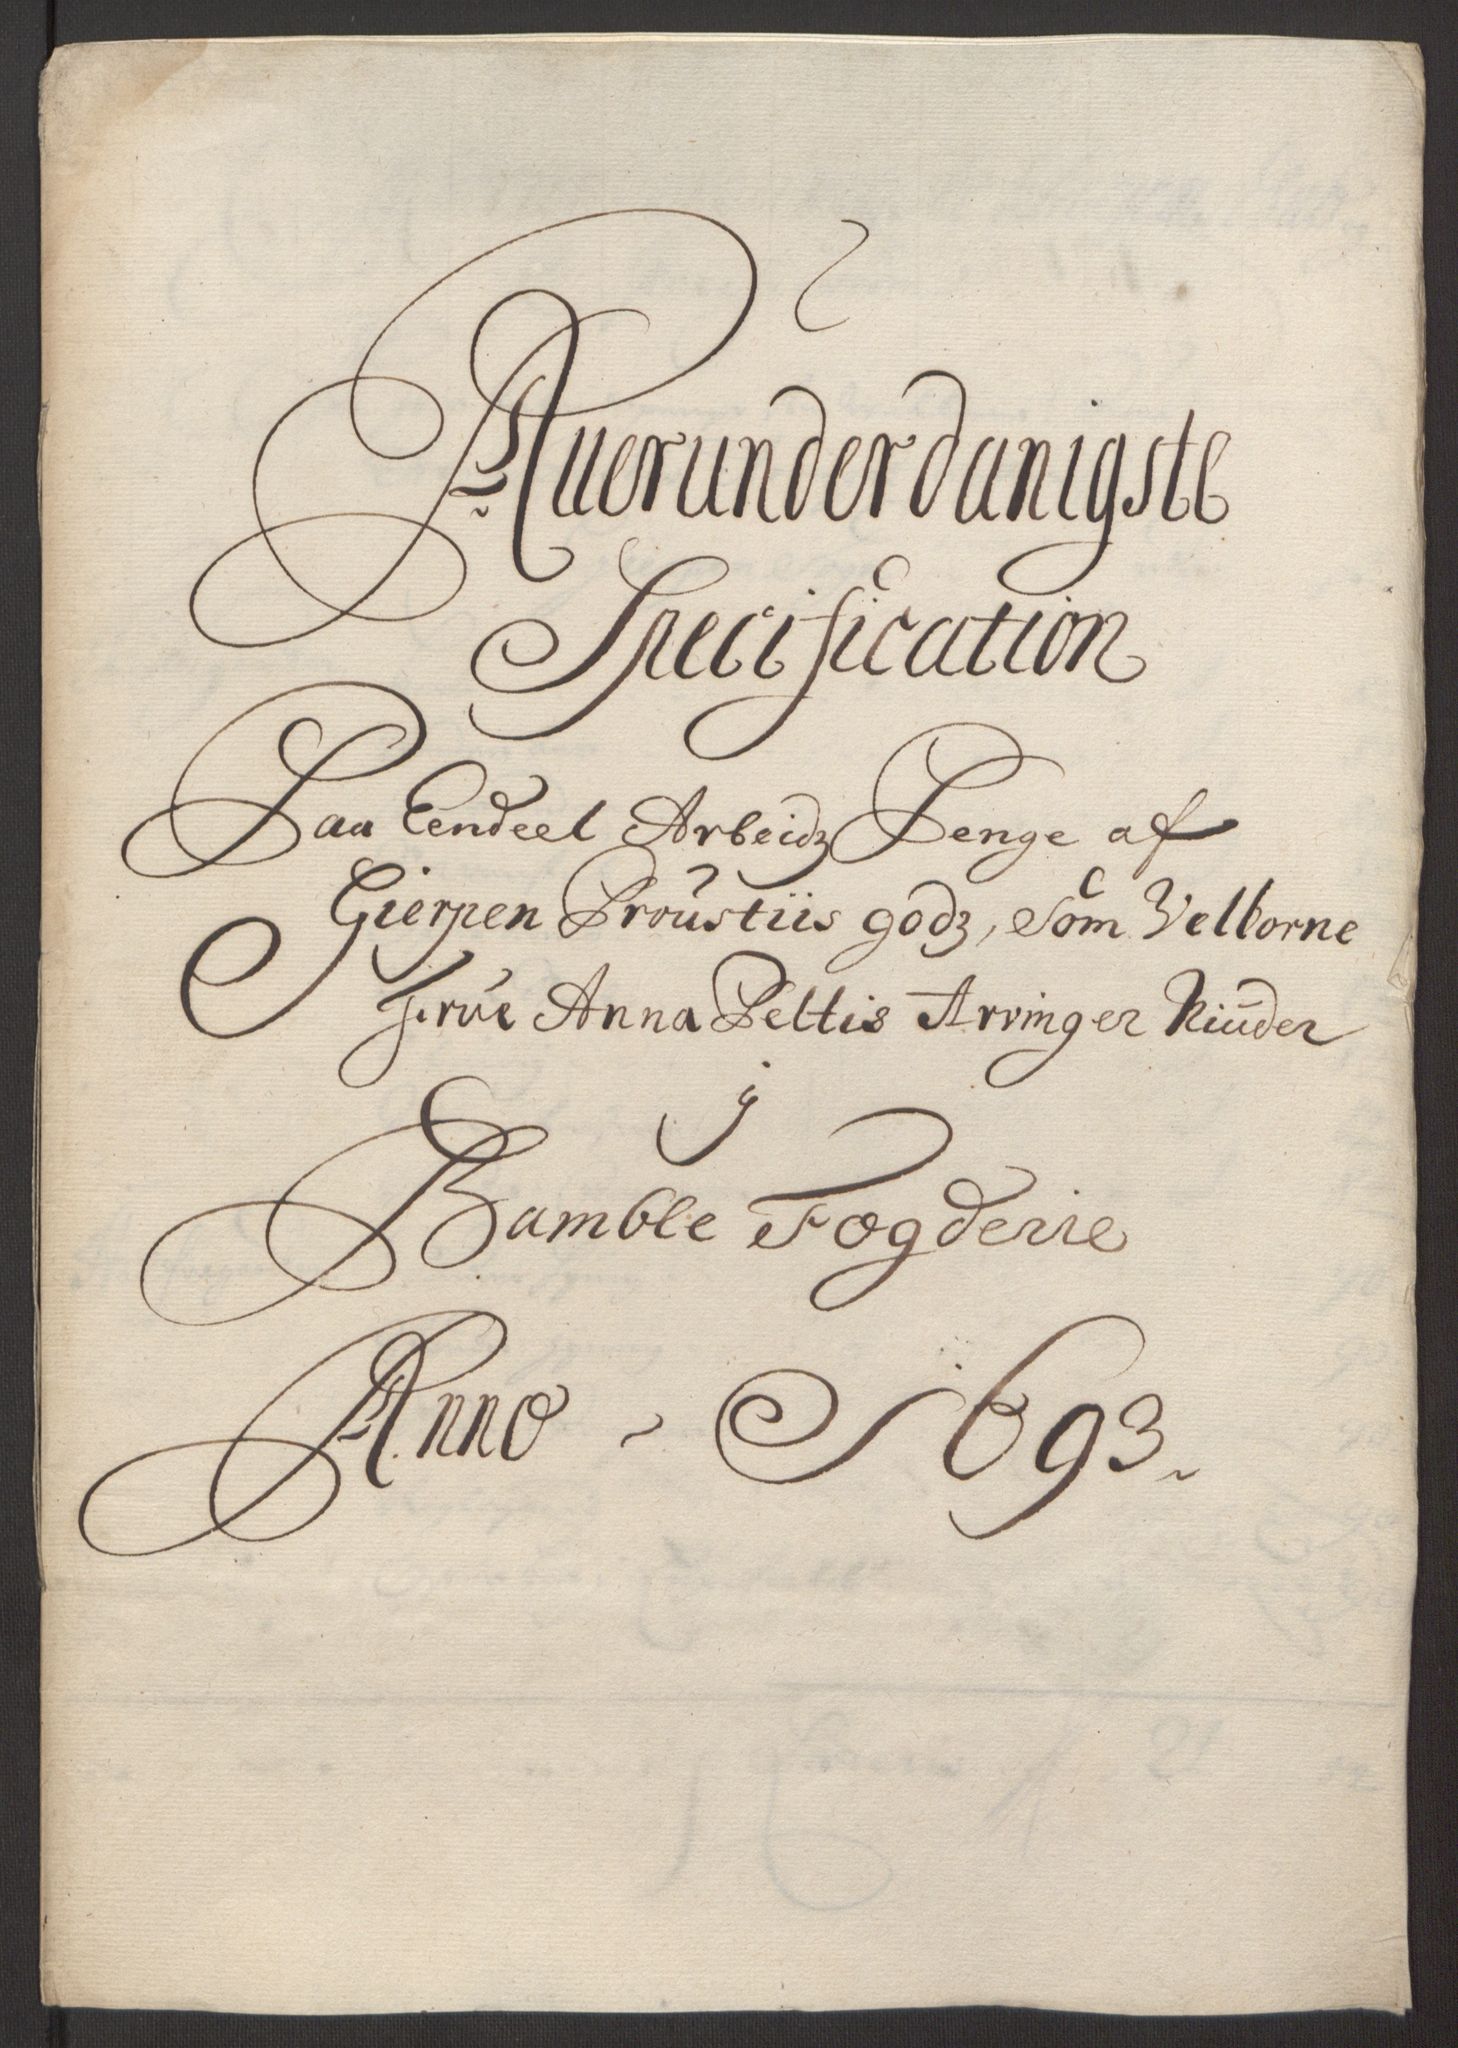 Allerunderdanigste
Specification
Paa Eendeel Arbeidz Penge af
Gierpen Proustiis godz, Som Velborne
Frue Anna Peltis Arvinger Niuder
j
Bamble Fogderie
Anno 1693